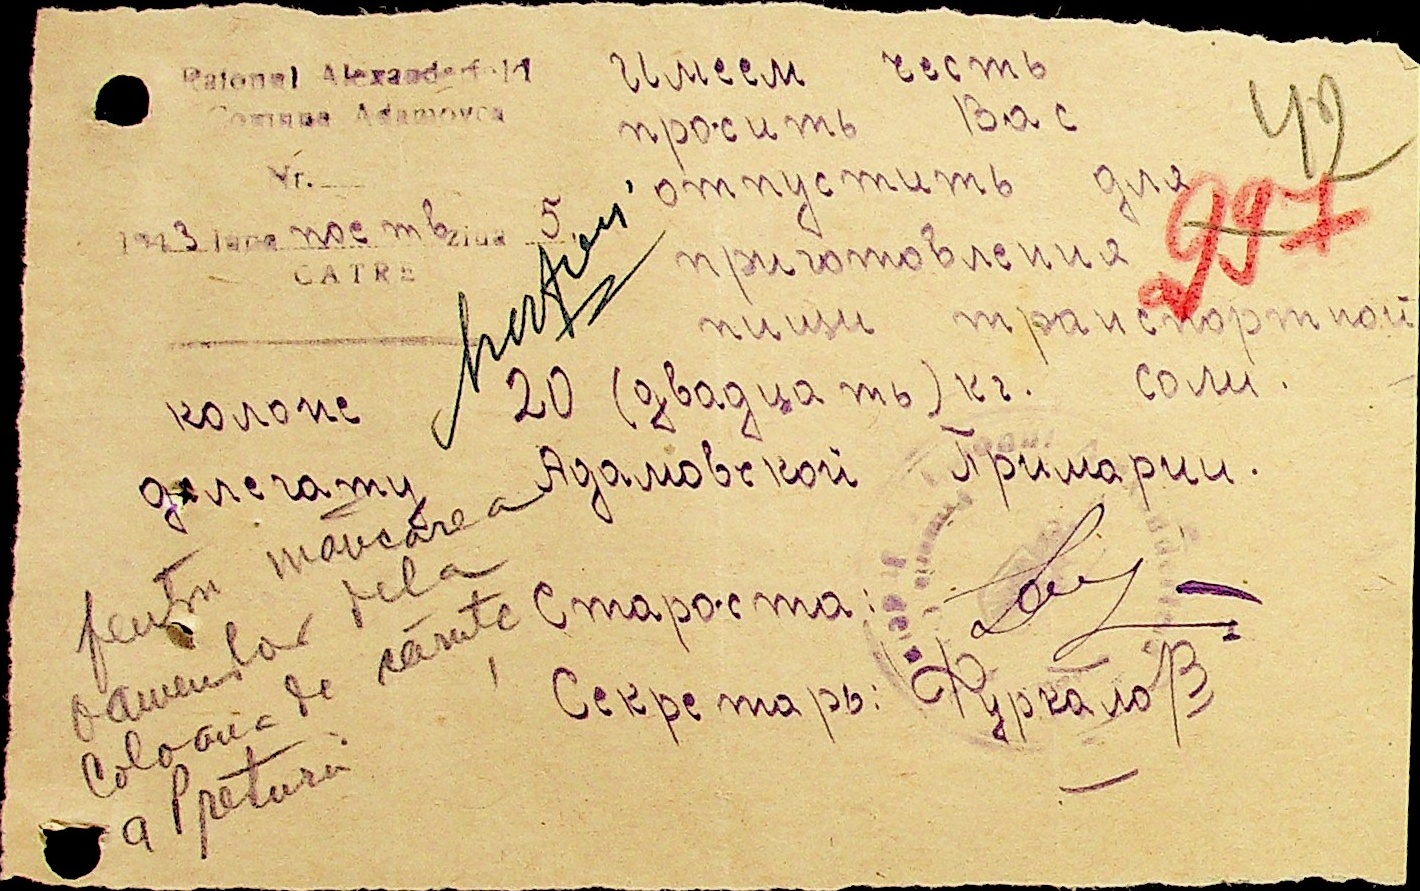 Raionul Alexanderfeld
Comuna Adamovca
Nr.
1943 luna ziua 5
CATRE
Имеем честь
просить Вас
отпустить для
приготовления
пищи транспортной
колоне 20 (двадцать) кг. соли.
делегату Адамовской Примарии.
Староста:
Секретарь:
42
997
pentru mâncarea
oamenilor dela
coloana de căruțe
a Preturii